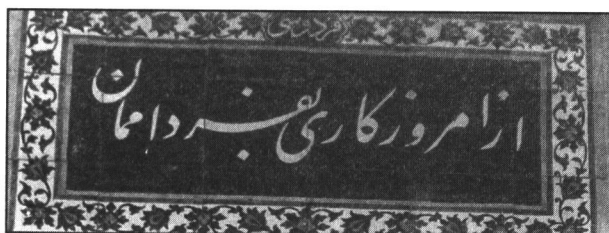 فردوسی
از امروز کاری بفردا ممان